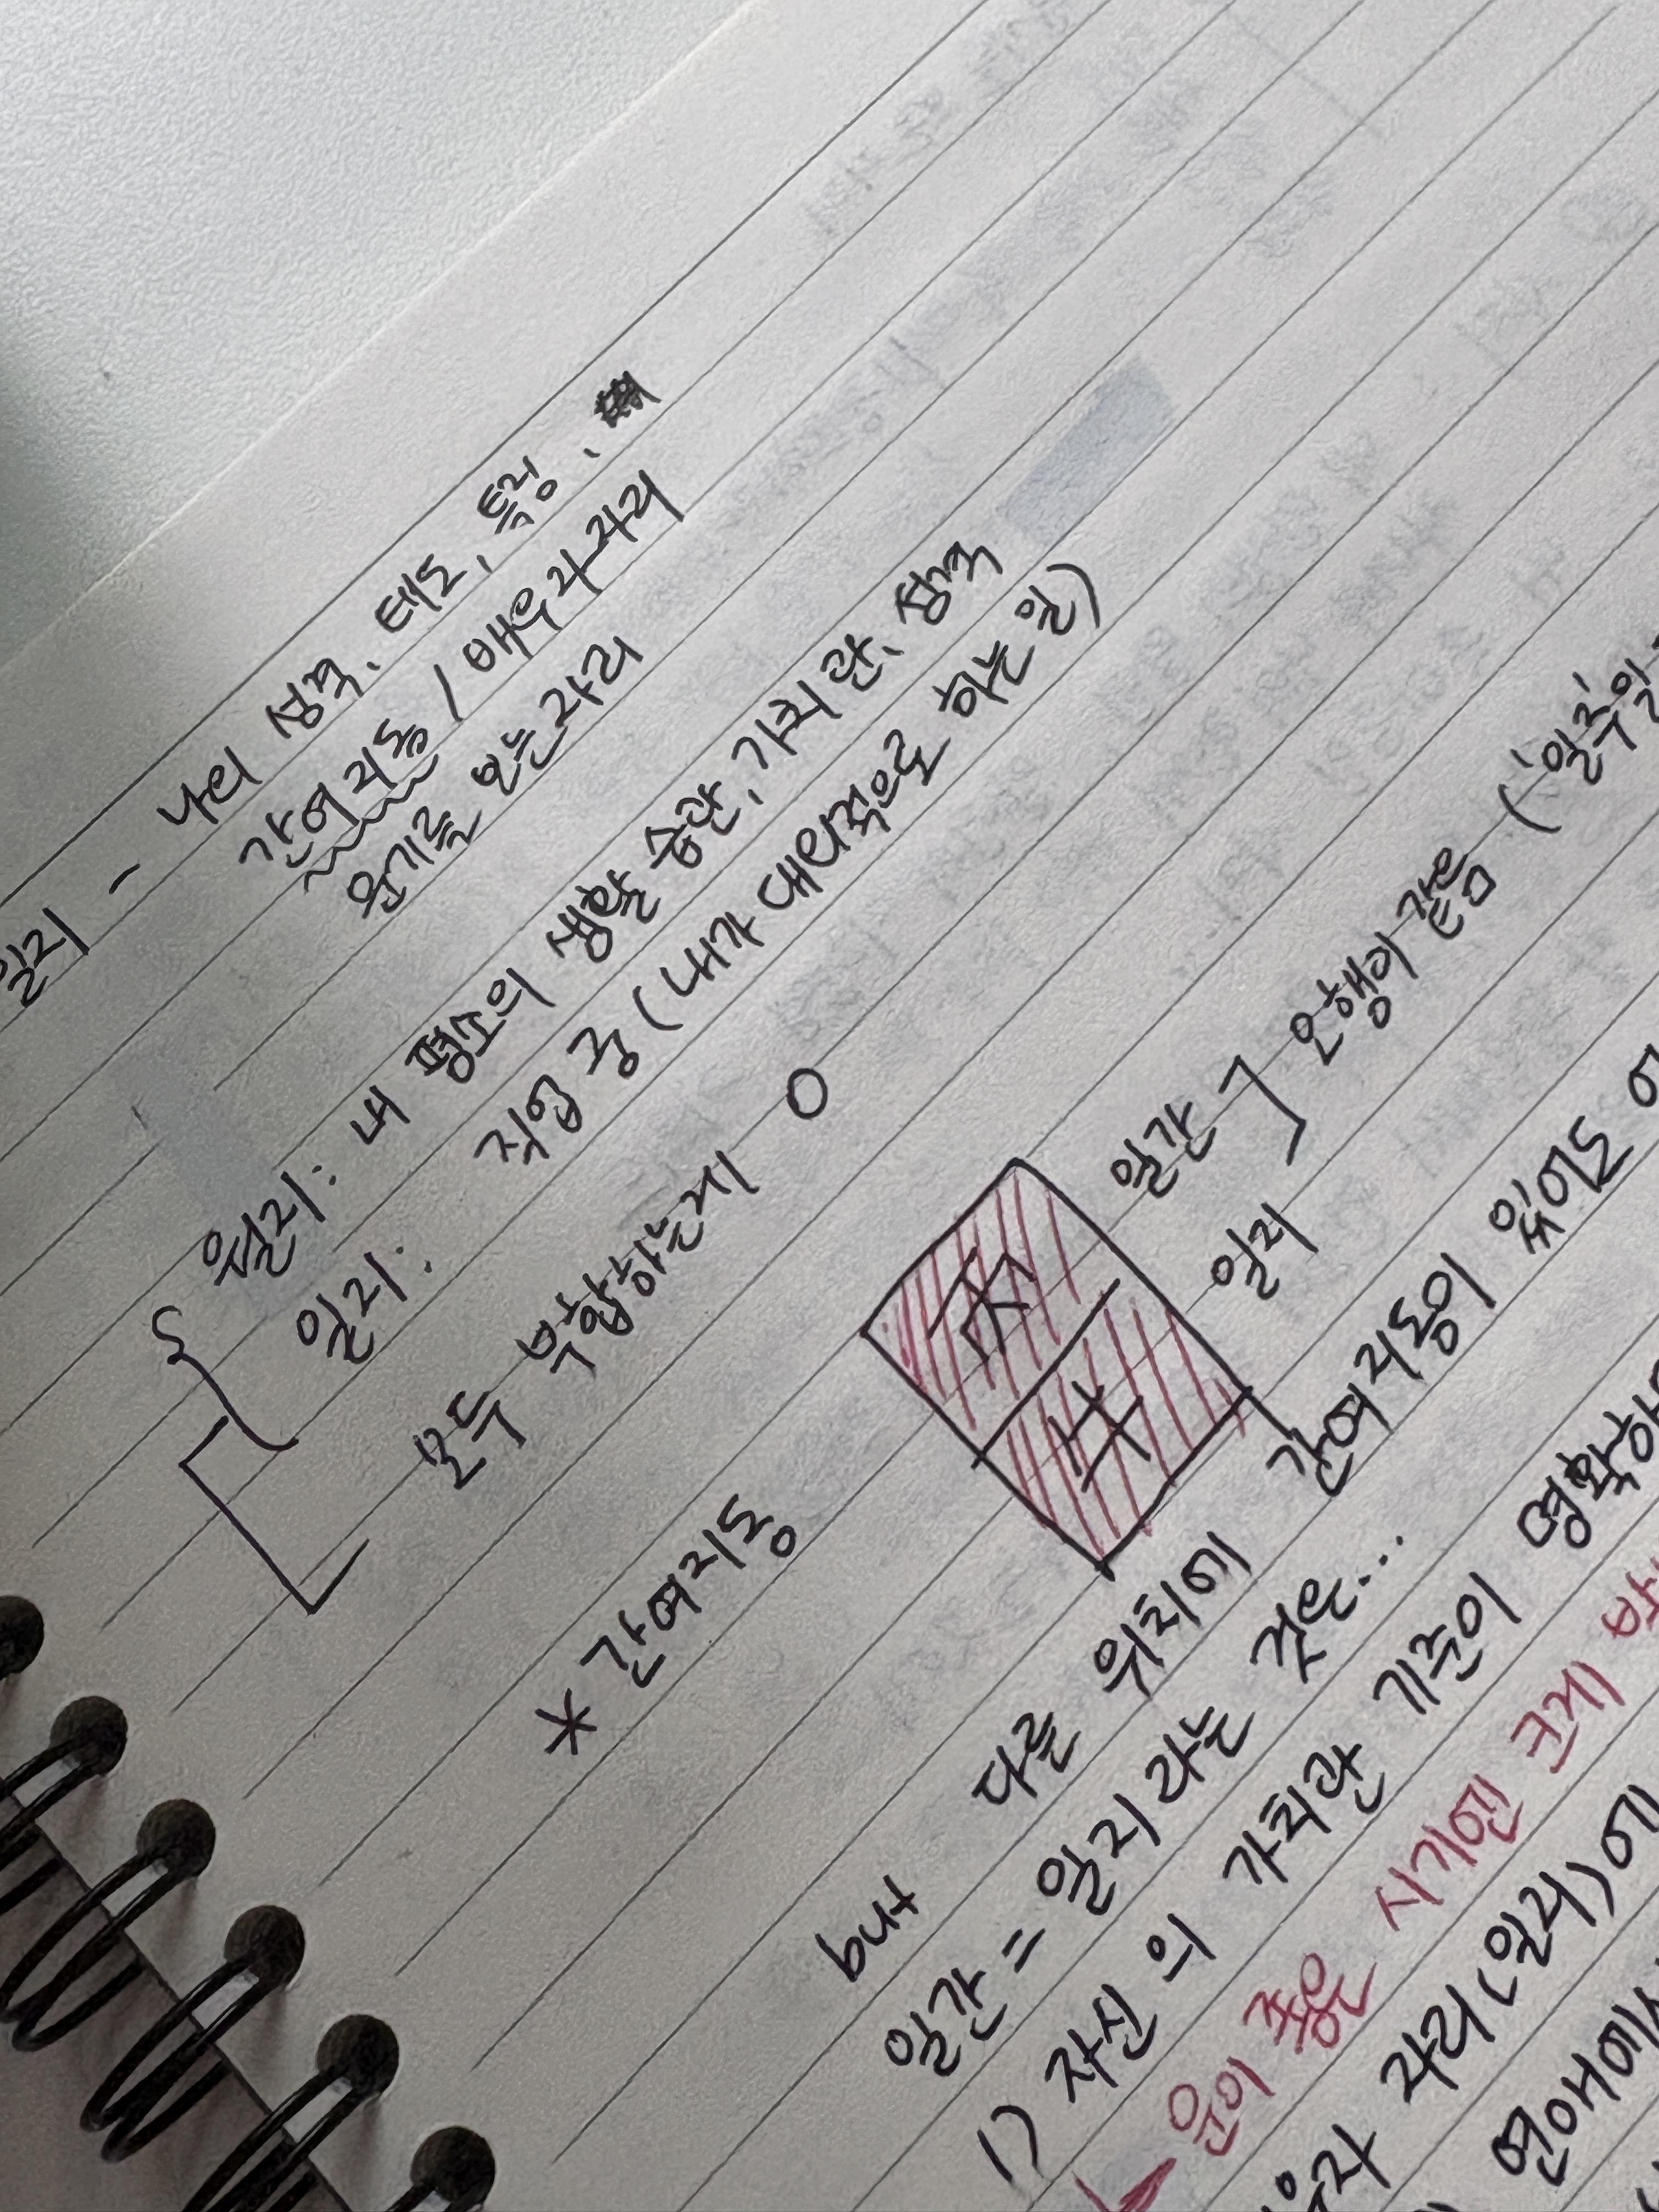 일지 - 나의 성격, 태도, 특징,
간여지동 / 배우자자리
용기를 얻는자리
월지: 내 평소의 생활 습관, 가치관, 성격
일지: 직업 궁 (내가 대외적으로 하는 일)
모두 부합하는게 O
* 간여지동
丙 일간
午 일지
오행이 같음 ('일주일
but 다른 위치에 간여지동이 있어도
일간 = 일지 라는 것은...
1) 자신의 가치관 기준이 명확하
운이 좋은 시기엔 크게
자리(일지)에
연애에서